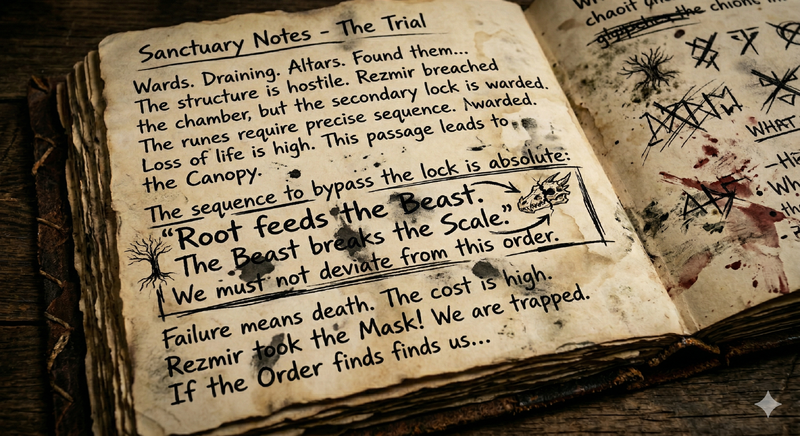 Sanctuary Notes - The Trial
Wards. Draining. Altars. Found them...
The structure is hostile. Rezmir breached
the chamber, but the secondary lock is warded.
The runes require precise sequence. Λwarded.
Loss of life is high. This passage leads to
the Canopy.
The sequence to bypass the lock is absolute:
"Root feeds the Beast.
The Beast breaks the Scale."
We must not deviate from this order.
Failure means death. The cost is high.
Rezmir took the Mask! We are trapped.
If the Order finds finds us...
the chioni,
WHAT